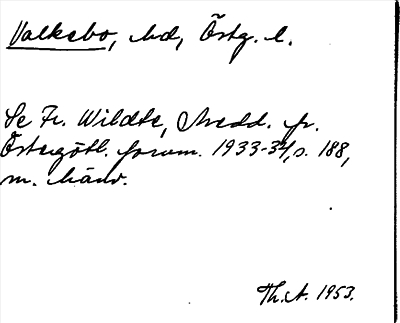 Valkebo, hd, Östg. l.
Se Fr. Wildte, Medd. fr.
Östergötl. fornm. 1933-34, s. 188,
m. hänv.
Th. A. 1953.